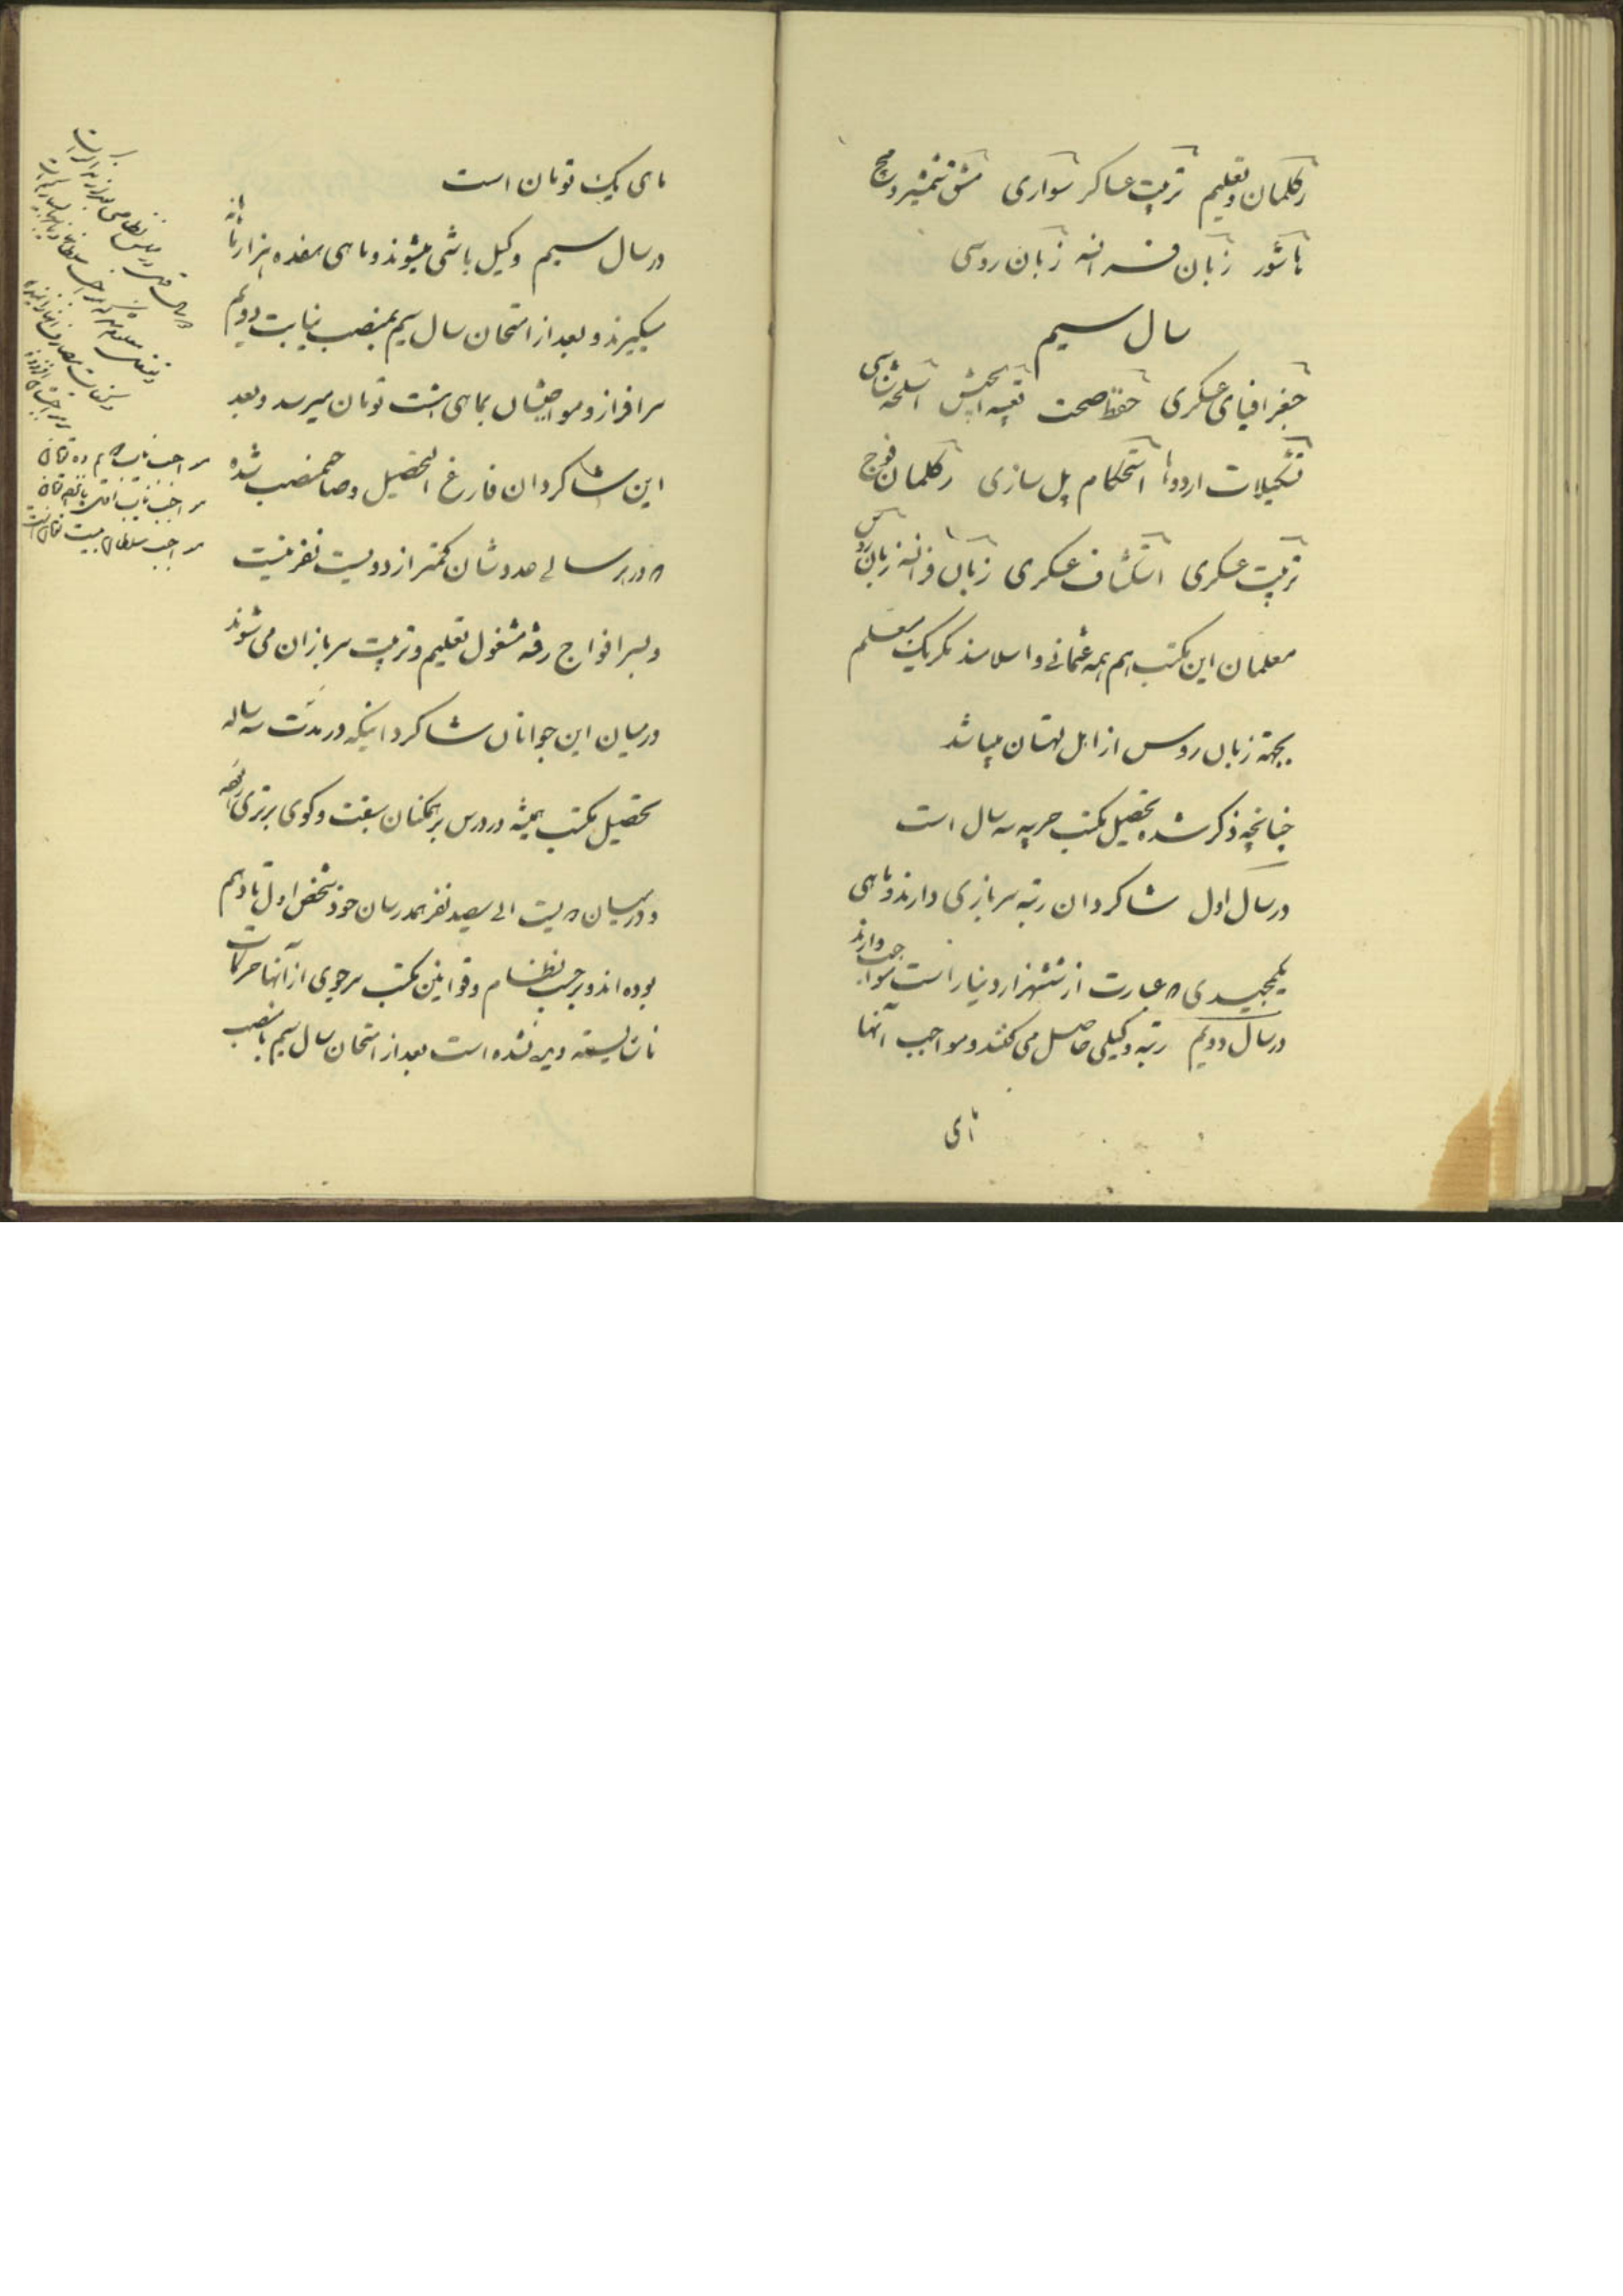 رکلمان و تعلیم تربیت عساکر سواری مشق شمشیر و مچ
پاشور زبان فرانسه زبان روسی
سال سیم
جغرافیای عسکری حفظ صحت تعبیه الجیش اسلحه شناسی
تشکیلات اردوها استحکام پل سازی رکلمان فوج
تربیت عسکری استکشاف عسکری زبان فرانسه زبان روس
معلمان این مکتب هم همه عثمانی و اسلامند مگر یک معلم
بجهة زبان روس از اهل لهستان میباشد
چنانچه ذکر شد تحصیل مکتب حربیه سه سال است
در سال اول شاگردان رتبه سربازی دارند و ماهی
یکمجیدی که عبارت از ششهزار دینار است مواجب دارند
در سال دویم رتبه وکیلی حاصل می کنند و مواجب آنها
ماهی
ماهی یک تومان است
در سال سیم وکیل باشی میشوند و ماهی هفده هزار ماهانه
میگیرند و بعد از امتحان سال سیم بمنصب نیابت دویم
سرافراز و مواجبشان بماهی هشت تومان میرسد و بعد
این شاگردان فارغ التحصیل و صاحمنصب شده
که در هر سالی عددشان کمتر از دویست نفر نیست
و بسر افواج رفته مشغول تعلیم و تربیت سربازان می شوند
در میان این جوانان شاگرد اینکه در مدت سه ساله
تحصیل مکتب همیشه در درس بر همکنان سبقت و کوی برتری
و در میان دویست الی سیصد نفر همدرسان خود شخص اول تا دهم
بوده اند و بر حسب نظام و قوانین مکتب سر موی از آنها حرکات
ناشایسته دیده نشده است بعد از امتحان سال سیم با منصب
مواجب نایب دویم ده تومان
مواجب نایب اول پانزده تومان
مواجب سلطان بیست تومان است